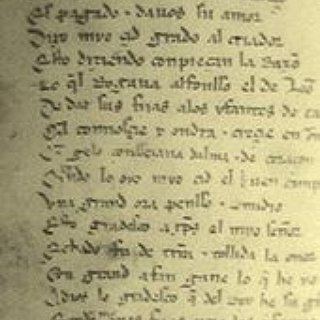 El pagado · davos su amor
Dixo myo çid grado al criador
Esto diziendo conpieçan la Razo
Lo ql Rogava alfonsso el de Leo
De dar sus fijas alos yfantes de ca
Ql connosçie y ondra · e creçie en
Q gelo conseiava dalma · de coraçon
Qndo lo oyo myo çid el buen campe
Una grand ora penso · comidio
Esto gradesco a xps el myo señor
Echado fu de tira · tollida la onor
Con grand afan gane lo q he yo
A dios lo gradesco q del Rey he su g